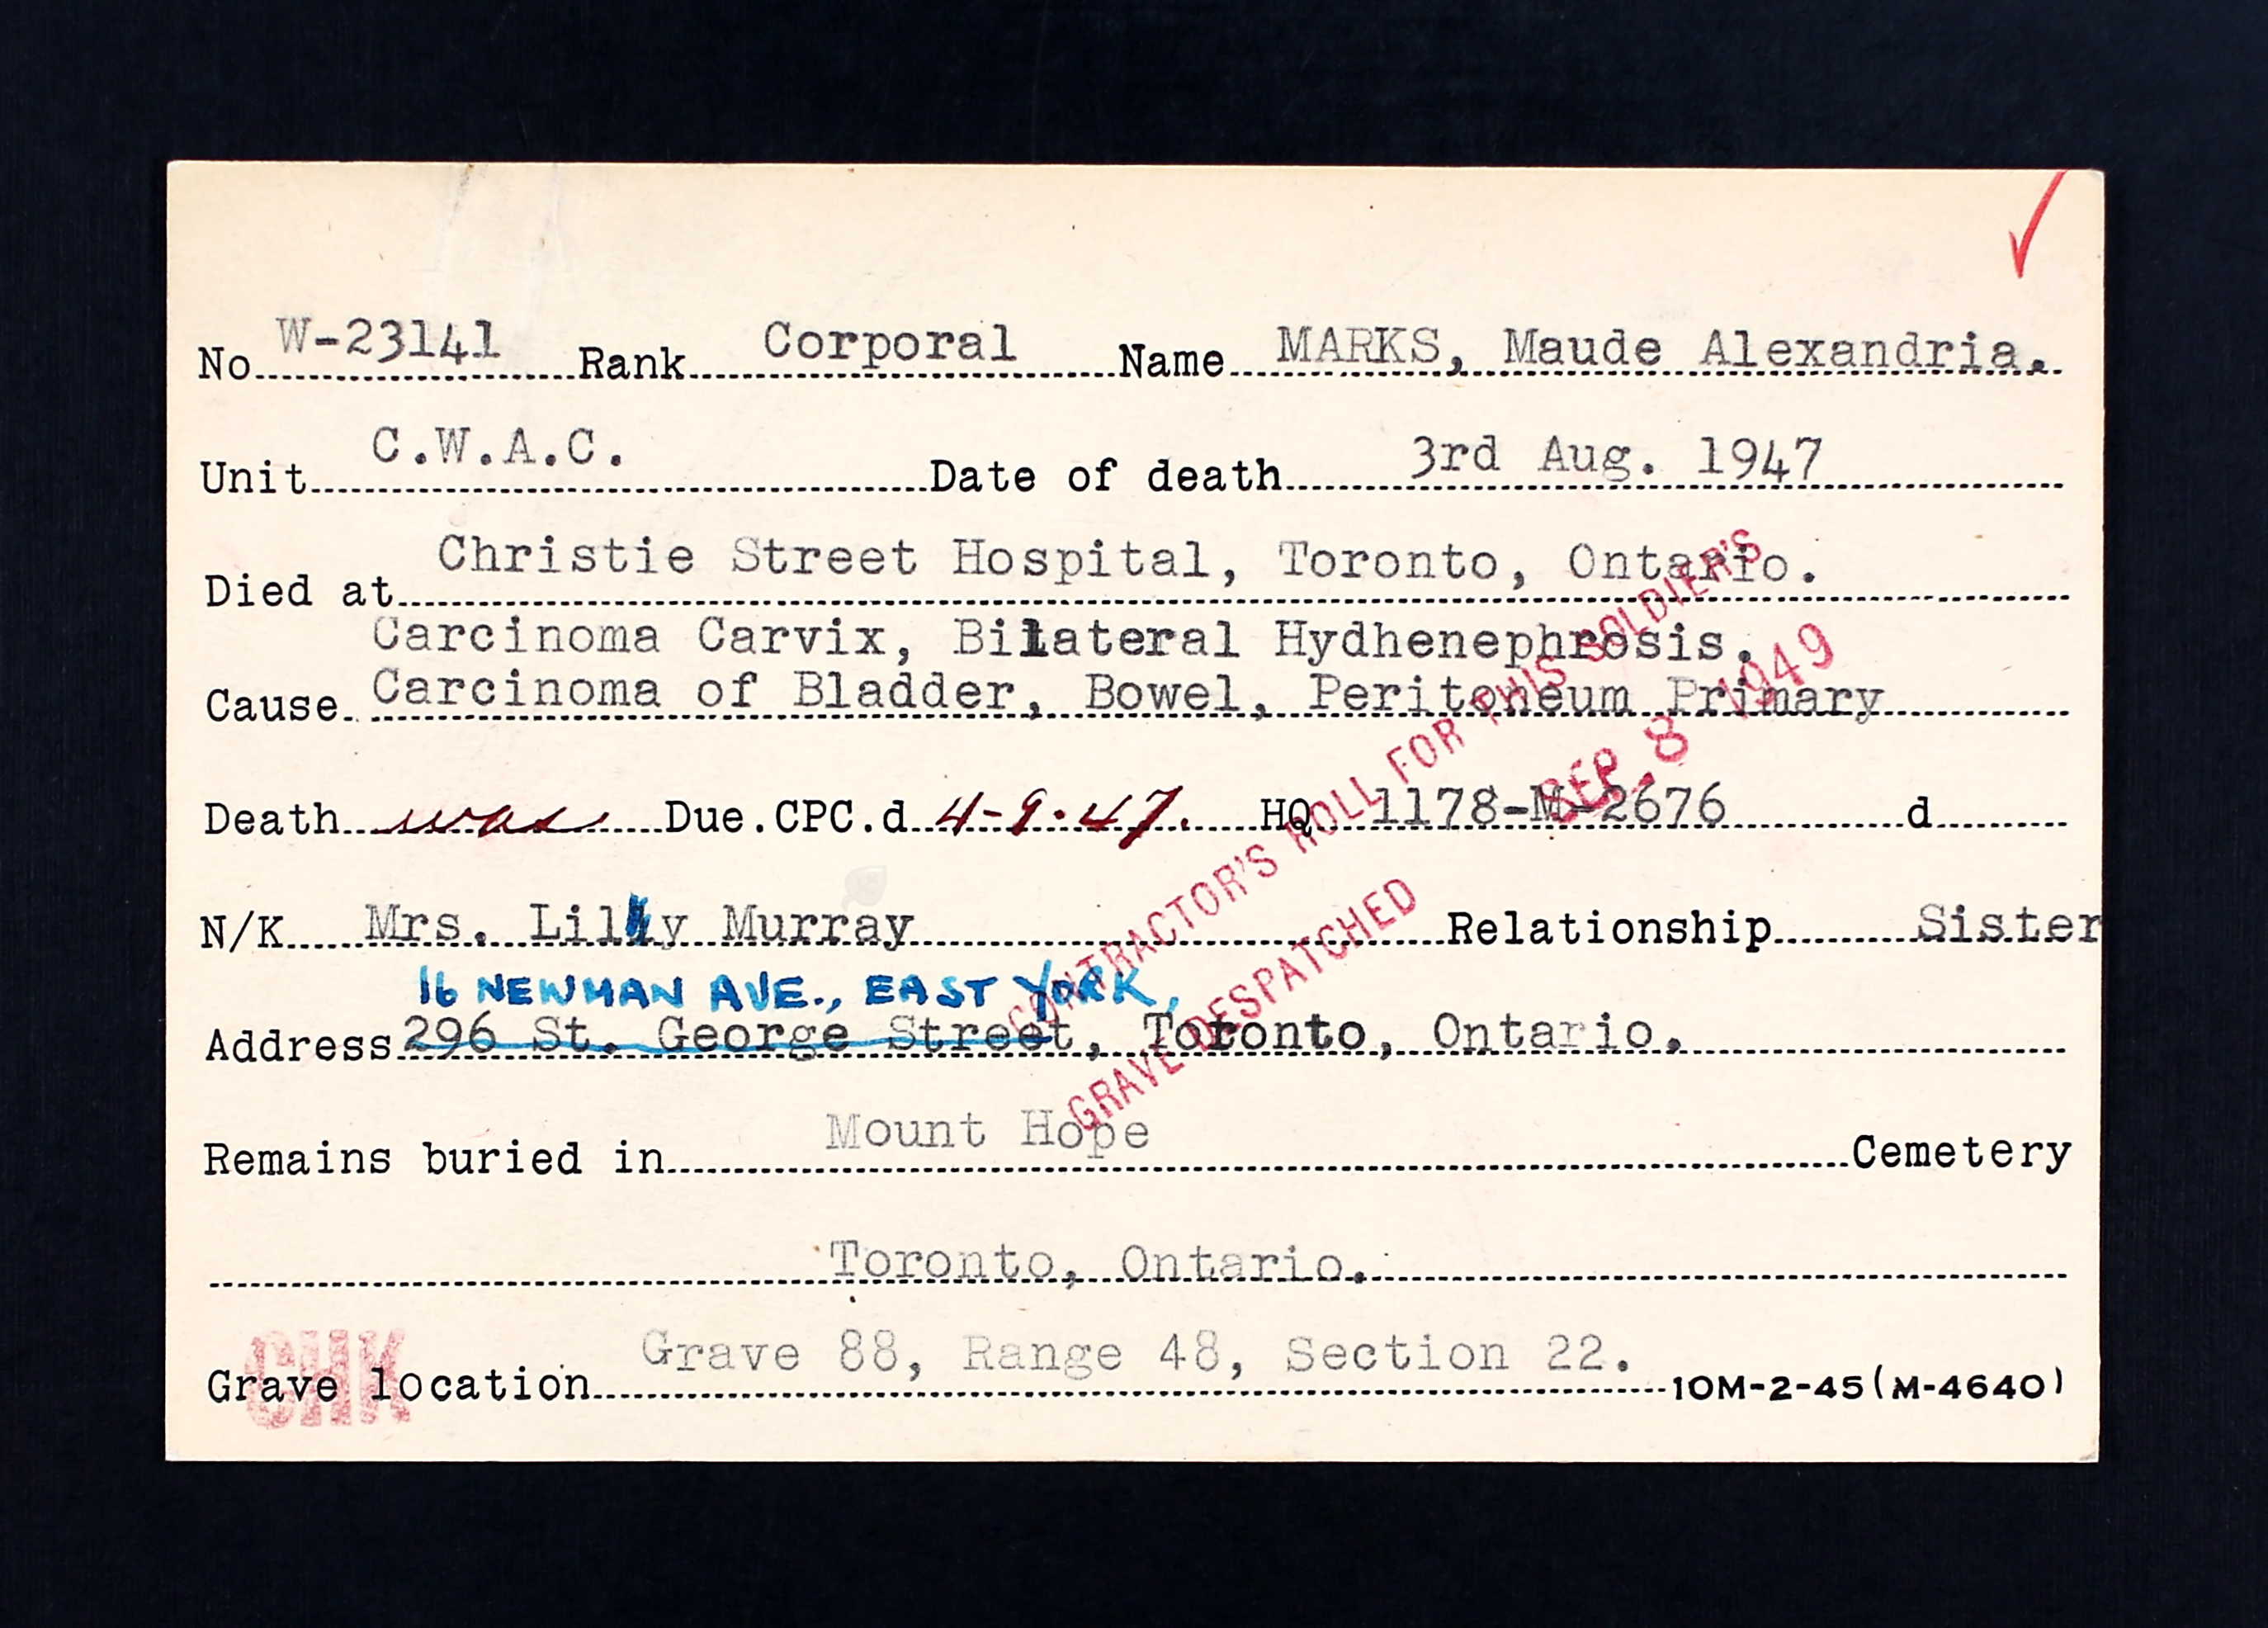 No W-23141 Rank Corporal Name MARKS, Maude Alexandria.
Unit C.W.A.C. Date of death 3rd Aug. 1947
Died at Christie Street Hospital, Toronto, Ontario.
Carcinoma Carvix, Bilateral Hydhenephrosis.
Cause Carcinoma of Bladder, Bowel, Peritoneum Primary
Death was Due. CPC. d 4-9-47. HQ 1178-M-2676 d
N/K Mrs. Lily Murray Relationship Sister
16 NEWMAN AVE., EAST YORK,
Address 296 St. George Street, Toronto, Ontario.
Remains buried in Mount Hope Cemetery
Toronto, Ontario.
Grave location Grave 88, Range 48, Section 22. 10M-2-45 (M-4640)
CONTRACTOR'S ROLL FOR THIS SOLDIER'S
GRAVE DESPATCHED SEP 8 1949
CHK